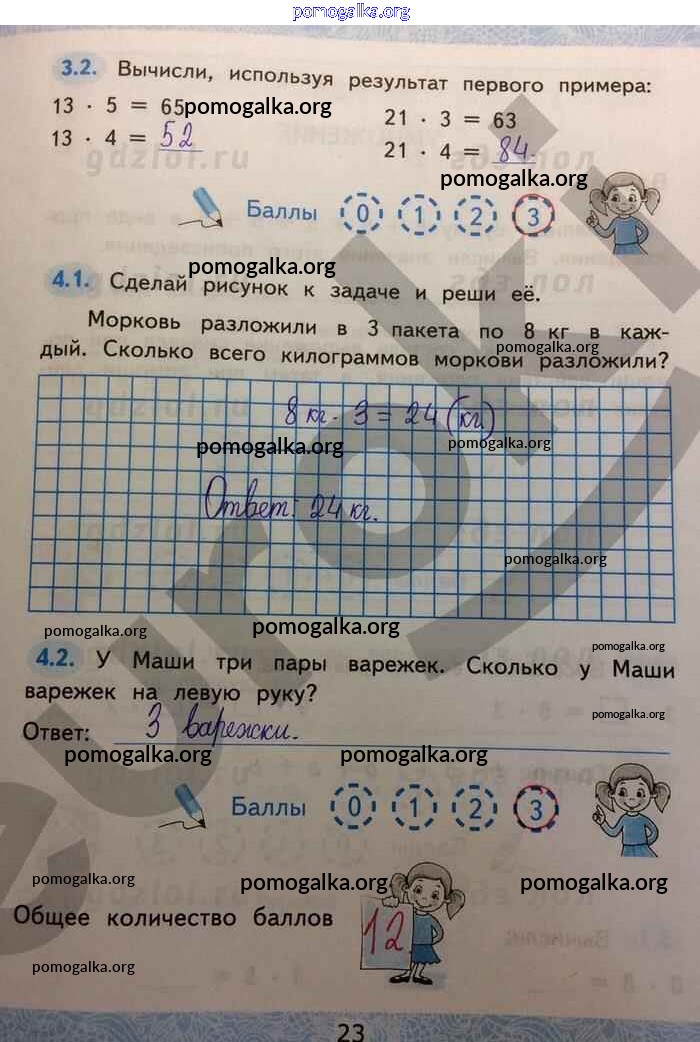 pomogalka.org
3.2. Вычисли, используя результат первого примера:
13 · 5 = 65 pomogalka.org 21 · 3 = 63
13 · 4 = 52 21 · 4 = 84.
gdzlol.ru
pomogalka.org
Баллы 0 1 2 3
pomogalka.org
4.1. Сделай рисунок к задаче и реши её.
Морковь разложили в 3 пакета по 8 кг в каж-
pomogalka.org
дый. Сколько всего килограммов моркови разложили?
8 кг · 3 = 24 (кг.)
pomogalka.org pomogalka.org
Ответ: 24 кг.
pomogalka.org
pomogalka.org pomogalka.org
pomogalka.org
4.2. У Маши три пары варежек. Сколько у Маши
варежек на левую руку?
pomogalka.org
Ответ: 3 варежки.
pomogalka.org pomogalka.org
Баллы 0 1 2 3
pomogalka.org pomogalka.org pomogalka.org
Общее количество баллов 12
pomogalka.org
23
euroki